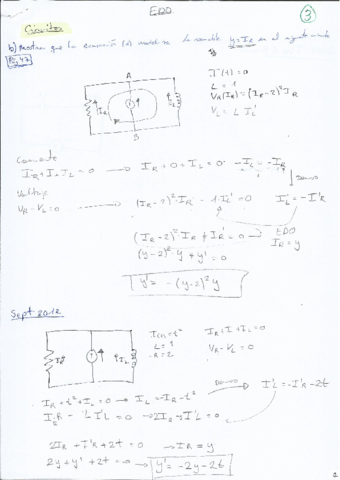 EDO
③
Circuitos
b) Mostrar que la ecuación (a) modeliza la variable y = I_R en el siguiente circuito
A
I_R
I_L
B
I(t) = 0
L = 1
V_R(I_R) = (I_R - 2)² I_R
V_L = L I'_L
Corriente
I_R + I + I_L = 0 → I_R + 0 + I_L = 0 → I_L = -I_R
Voltaje
V_R - V_L = 0 → (I_R - 2)² · I_R - 1 · I'_L = 0   I'_L = -I'_R
(I_R - 2)² I_R + I'_R = 0 → EDO
I_R = y
(y-2)² · y + y' = 0
y' = -(y-2)² y
Sept 2012
I(t) = t²
L = 1
R = 2
I_R + I + I_L = 0
V_R - V_L = 0
I_R + t² + I_L = 0 → I_L = -I_R - t²   I'_L = -I'_R - 2t
I_R R - L I'_L = 0 → 2I_R - I'_L = 0
2I_R + I'_R + 2t = 0 → I_R = y
2y + y' + 2t = 0 → y' = -2y - 2t